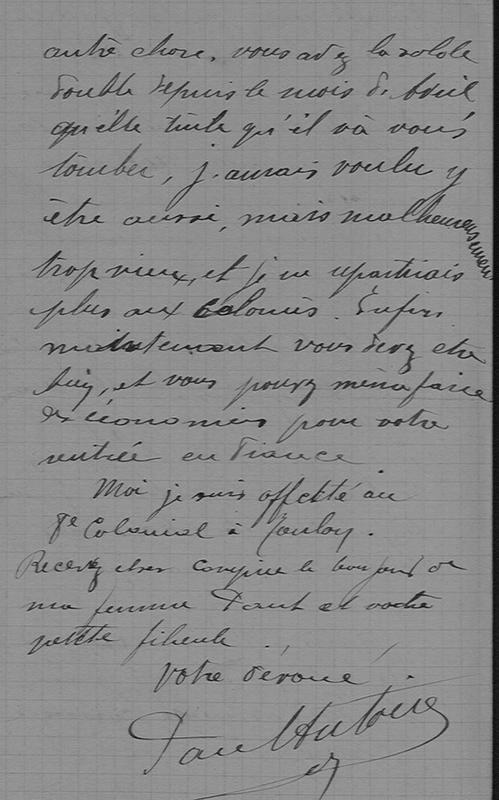 autre chose, vous avez la solde
double depuis le mois d'Avril
quelle tuile qu'il va vous
tomber, j'aurais voulu y
être aussi, mais malheureusement
trop vieux, et je ne repartirais
plus aux colonies. Enfin
maintenant vous devez etre
bien, et vous pouvez même faire
des économies pour votre
rentrée en France
Moi je suis affecté au
8e Colonial à Toulon.
Recevez cher le bonjour de
ma femme et votre
petite filleule
Votre dévoué.
Paul